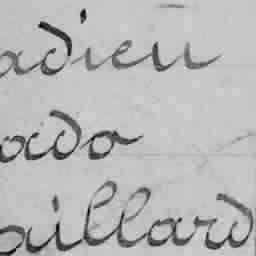 adieu
ado
aillard